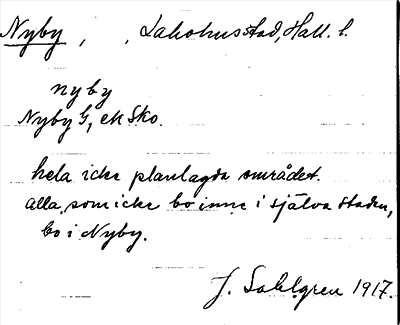 Nyby, , Laholms stad, Hall. l.
nyby
Nyby G, ek Sko.
hela icke planlagda området.
alla, som icke bo inne i själva staden,
bo i Nyby.
J. Sahlgren 1917.